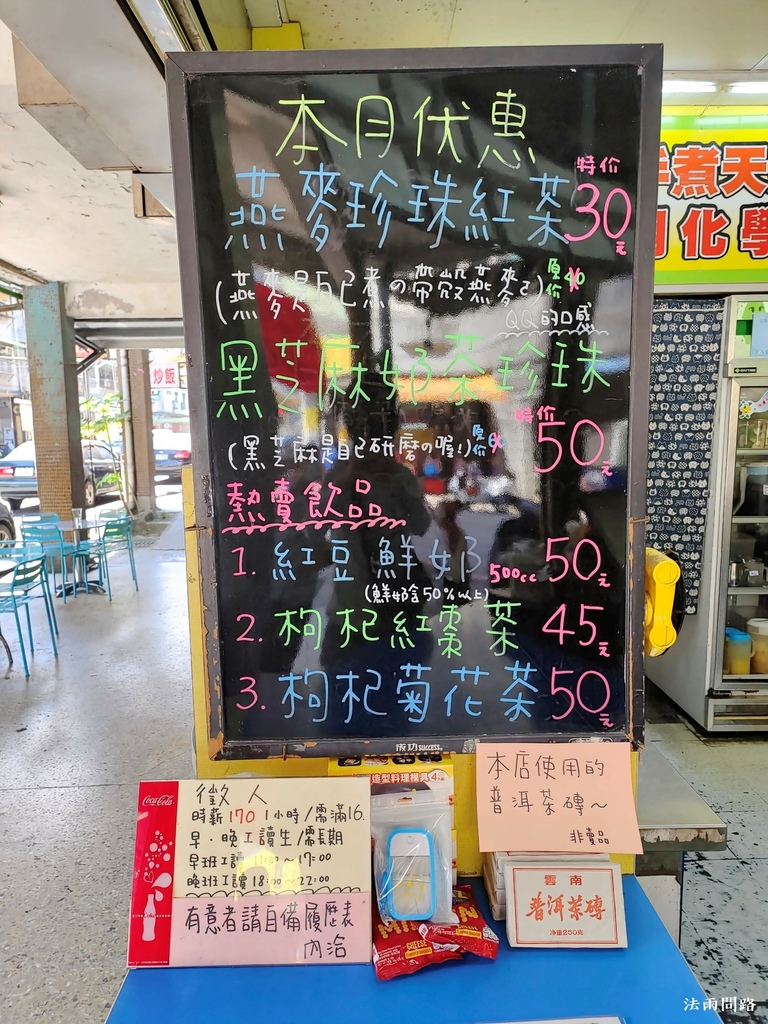 本月优惠
燕麥珍珠紅茶
特价
30元
(燕麥是自己煮の帶殼燕麥)
原价40
QQ的口感
黑芝麻奶茶珍珠
特价
50元
(黑芝麻是自己研磨の喔!)
原价
熱賣飲品
1. 紅豆鮮奶 500cc 50元
(鮮奶含50%以上)
2. 枸杞紅棗茶 45元
3. 枸杞菊花茶 50元
成功 SUCCESS
炒飯
煮天
化學
Coca-Cola
徵人
時薪170 1小時/需滿16.
早·晚工讀生/需長期
早班工讀 11:00~17:00
晚班工讀18:00~22:00
有意者請自備履歷表
內洽
造型料理模具
CHEESE
本店使用的
普洱茶磚~
非賣品
雲南
普洱茶磚
淨重250克
法雨問路